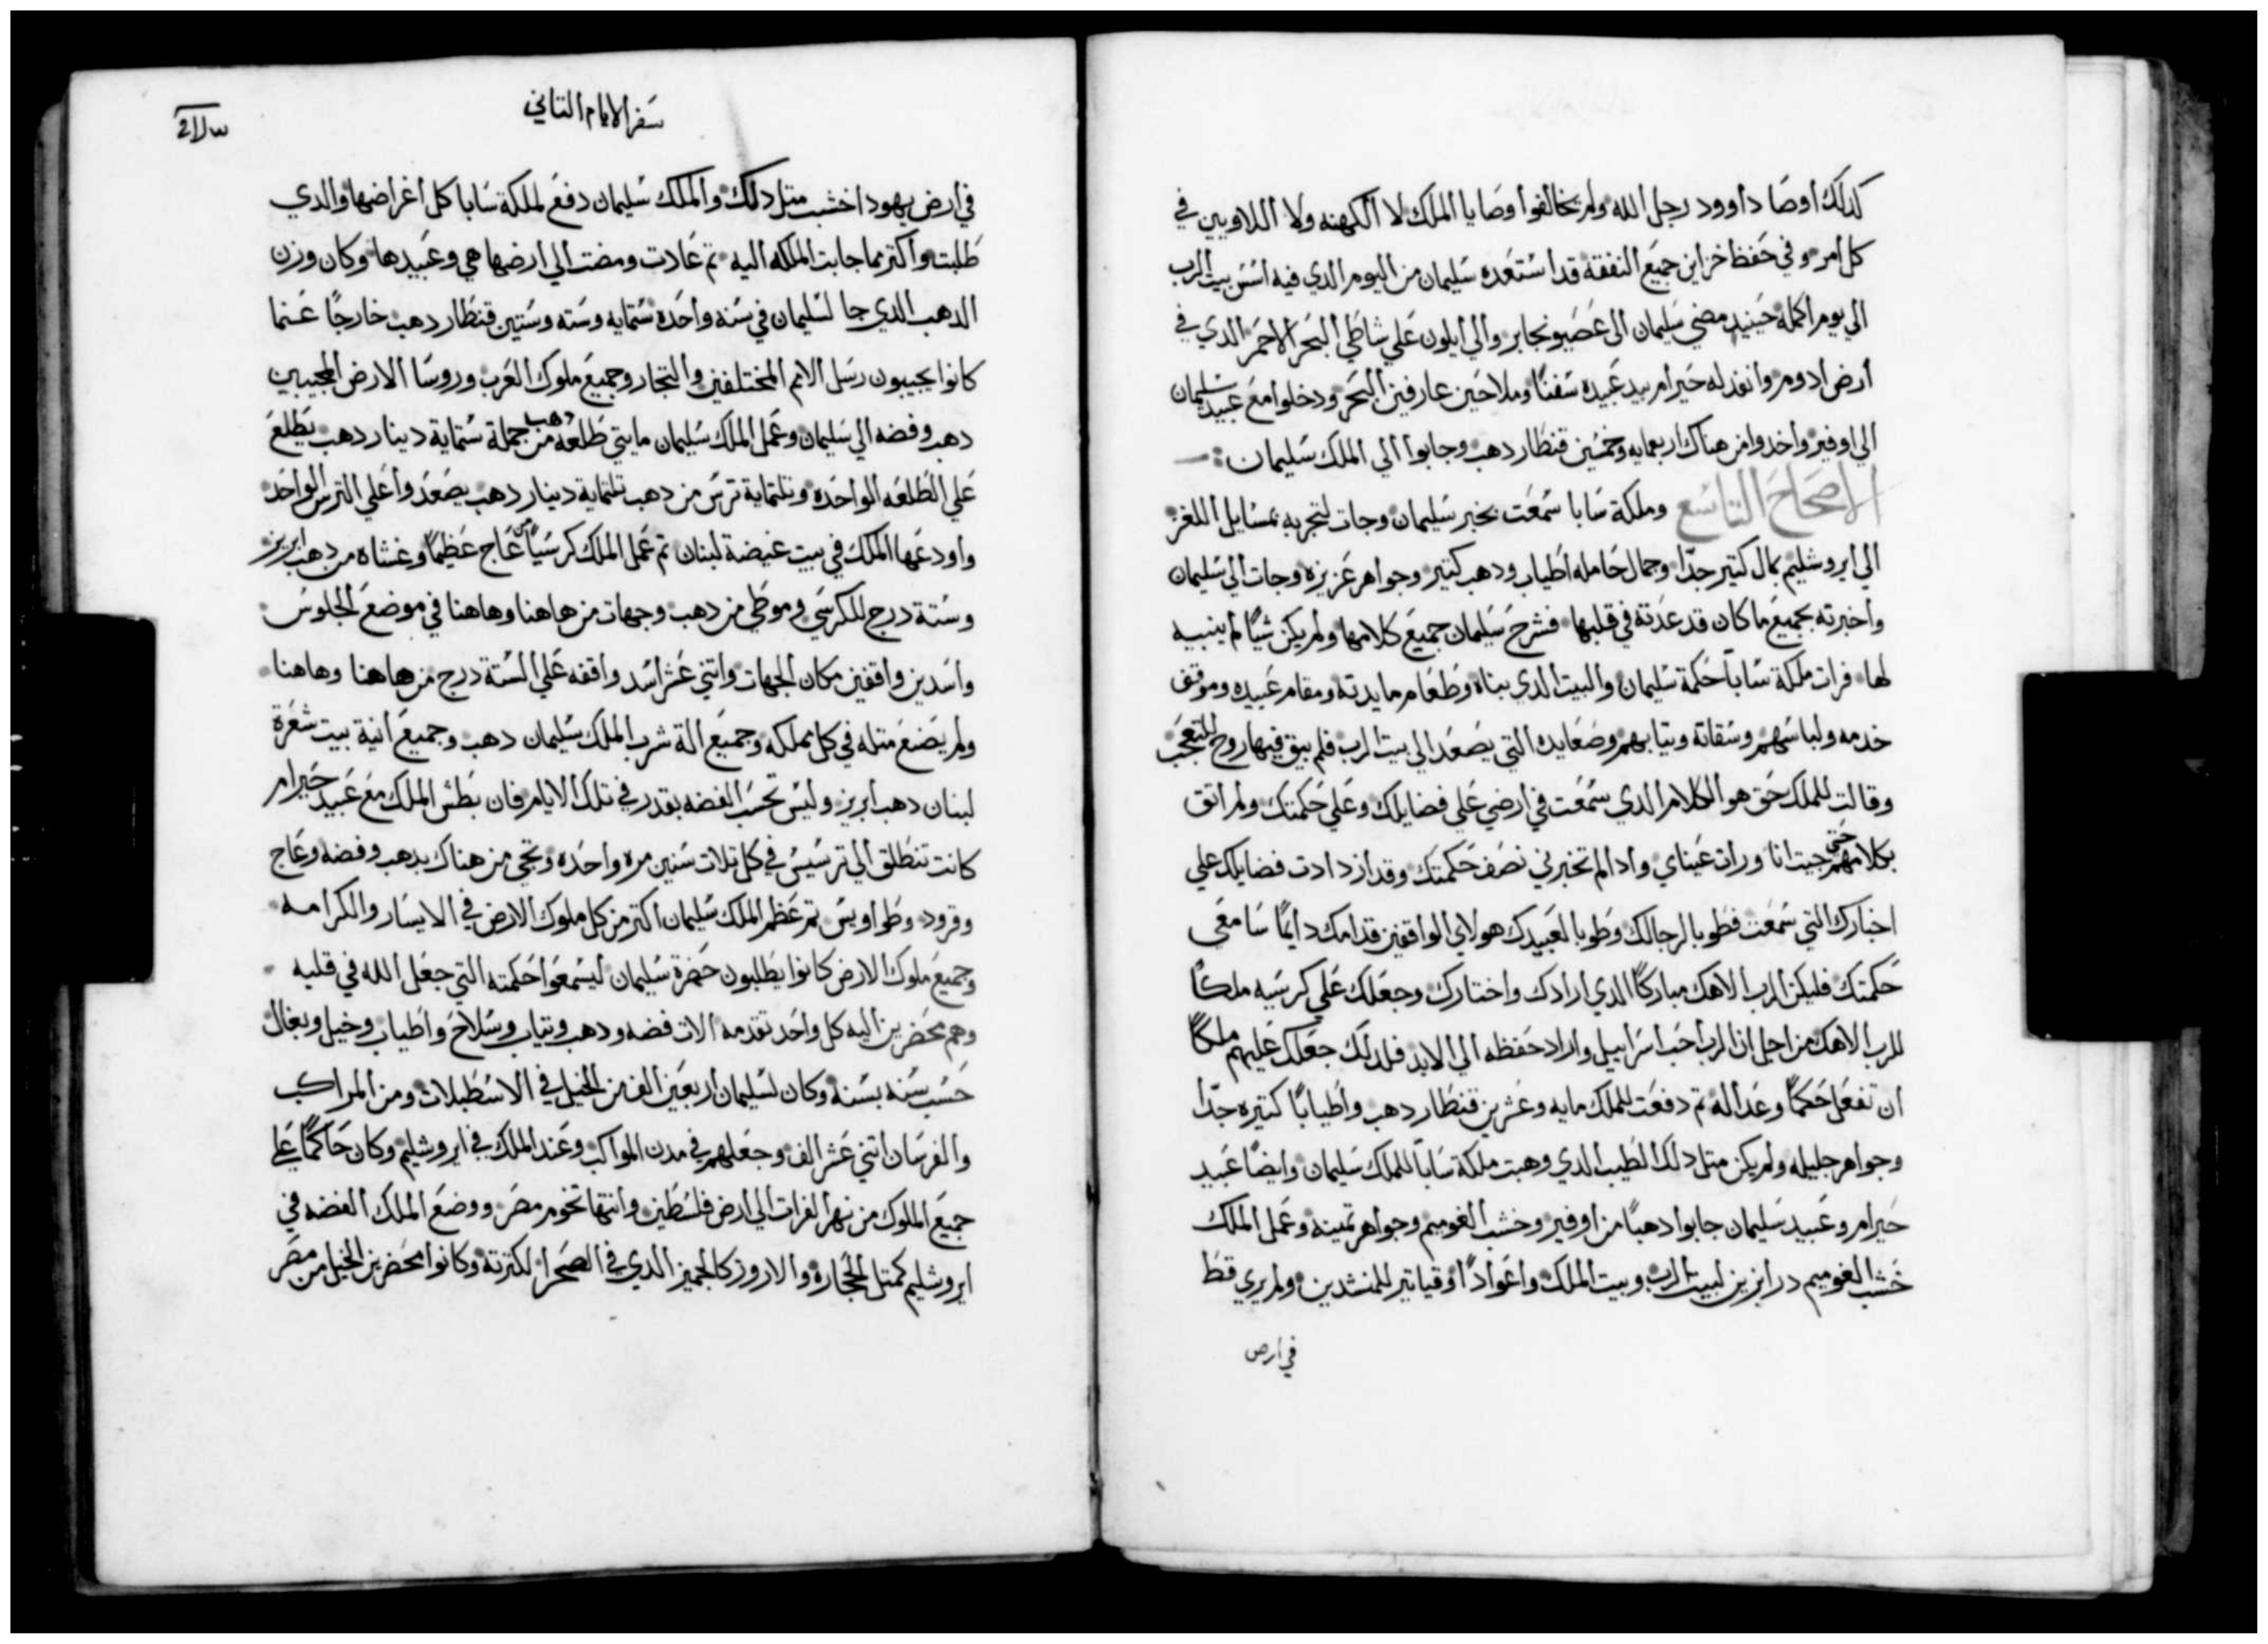 كدلك أوصا داوود رجل الله ولم يخالفوا وصايا الملك لا الكهنه ولا اللاويين في
كل أمر وفي حفظ خزاين جميع النفقة قد استعده سليمان من اليوم الدي فيه اسس بيت الرب
الي يوم اكمله حينيد مضي سليمان الى عصيونجابر والي ايلون علي شاطي البحر الاحمر الدي في
أرض ادوم وانفد له حيرام بيد عبيده سفنًا وملاحين عارفين البحر ودخلوا مع عبيد سليمان
الي اوفير واخدوا من هناك اربعمايه وخمسين قنطار دهب وجابوا الي الملك سليمان
الاصحاح التاسع وملكة سابا سمعت بخبر سليمان وجات لتجربه بمسايل اللغز
الي ايروشليم بمال كتير جدًا وجمال حامله اطياب ودهب كتير وجواهر عزيزه وجات الي سليمان
واخبرته بجميع ما كان قد عدته في قلبها فشرح سليمان جميع كلامها ولم يكن شيًا لم ينبيه
لها فرات ملكة سابا حكمة سليمان والبيت الدي بناه وطعام مايدته ومقام عبيده وموقف
خدمه ولباسهم وسقاته وتيابهم وصعايده التي يصعد الي بيت الرب فلم يبق فيها روح للتعجب
وقالت للملك حق هو الكلام الدي سمعت في ارضي علي فضايلك وعلي حكمتك ولم اتق
بكلامهم حتي جيت انا ورات عيناي واد الم تخبرني نصف حكمتك وقد ازدادت فضايلك علي
اخبارك التي سمعت فطوبا لرجالك وطوبا لعبيدك هولاي الواقفين قدامك دايمًا سامعي
حكمتك فليكن الرب الاهك مباركًا الدي ارادك واختارك وجعلك علي كرسيه ملكًا
للرب الاهك من اجل ان الرب احب اسراييل واراد حفظه الي الابد فلدلك جعلك عليهم ملكًا
ان تفعل حكمًا وعداله تم دفعت للملك مايه وعشرين قنطار دهب واطيابًا كتيره جدًا
وجواهر جليله ولم يكن متل دلك الطيب الدي وهبت ملكة سابا للملك سليمان وايضًا عبيد
حيرام وعبيد سليمان جابوا دهبًا من اوفير وخشب الغوميم وجواهر تمينه وعمل الملك
خشب الغوميم درابزين لبيت الرب وبيت الملك واعوادًا وقياتير للمنشدين ولم يري قط
في ارض
سفر الايام التاني
في أرض يهودا خشب متل دلك والملك سليمان دفع لملكة سابا كل اغراضها والدي
طلبت واكتر مما جابت الملكه اليه تم عادت ومضت الي ارضها هي وعبيدها وكان وزن
الدهب الدي جا لسليمان في سنه واحده ستمايه وسته وستين قنطار دهب خارجًا عنما
كانوا يجيبون رسل الامم المختلفين والتجار وجميع ملوك العرب وروسا الارض المجيبين
دهب وفضه الي سليمان وعمل الملك سليمان مايتي طلعه دهب من جملة ستماية دينار دهب يطلع
علي الطلعه الواحده وتلتماية ترس من دهب تلتماية دينار دهب يصعدوا علي الترس الواحد
واودعها الملك في بيت غيضة لبنان تم عمل الملك كرسيًا من عاج عظيمًا وغشاه من دهب ابريز
وستة درج للكرسي وموطي من دهب وجهات من هاهنا وهاهنا في موضع الجلوس
واسدين واقفين مكان الجهات واتني عشر اسد واقفه علي الستة درج من هاهنا وهاهنا
ولم يضع متله في كل مملكه وجميع الة شرب الملك سليمان دهب وجميع انية بيت شعرة
لبنان دهب ابريز وليس تحسب الفضه بقدر في تلك الايام فان بطش الملك مع عبيد حيرام
كانت تنطلق الي ترسيس في كل تلات سنين مره واحده وتجي من هناك بدهب وفضه وعاج
وقرود وطواويس تم عظم الملك سليمان اكتر من كل ملوك الارض في الايسار والكرامه
وجميع ملوك الارض كانوا يطلبون حضرة سليمان ليسمعوا حكمته التي جعل الله في قلبه
وهم محضرين اليه كل واحد تقدمه الات فضه ودهب وتياب وسلاح واطياب وخيل وبغال
حسب سنه بسنه وكان لسليمان اربعين الف من الخيل في الاسطبلات ومن المراكب
والفرسان اتني عشر الف وجعلهم في مدن المواكب وعند الملك في ايروشليم وكان حاكمًا علي
جميع الملوك من نهر الفرات الي ارض فلسطين وانتها تخوم مصر ووضع الملك الفضه في
ايروشليم كمتل الحجاره والاروز كالجميز الدي في الصحرا لكترته وكانوا محضرين الخيل من مصر